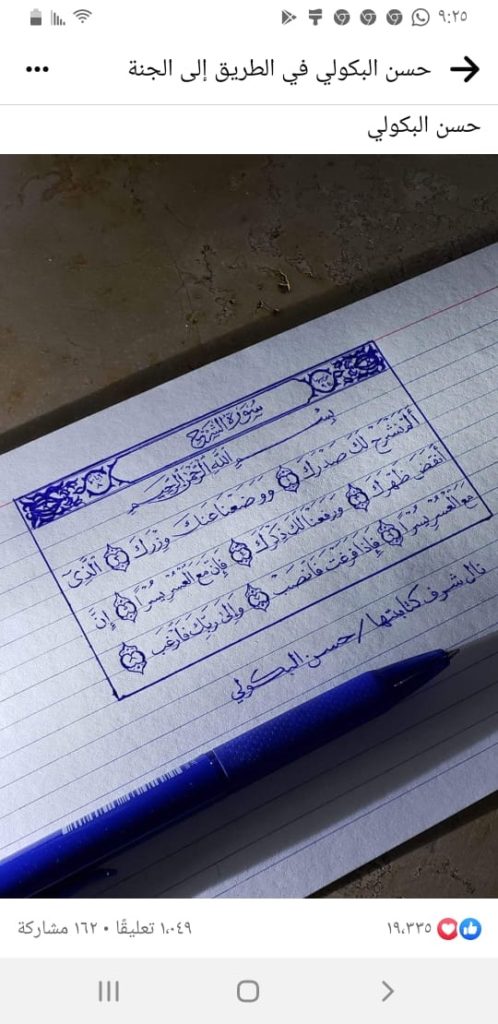 ٩:٢٥
حسن البكولي في الطريق إلى الجنة
حسن البكولي
سورة الشرح
بسم الله الرحمن الرحيم
ألم نشرح لك صدرك ١ ووضعنا عنك وزرك ٢ الذى
أنقض ظهرك ٣ ورفعنا لك ذكرك ٤ فإن مع العسر يسرا ٥ إن
مع العسر يسرا ٦ فإذا فرغت فانصب ٧ وإلى ربك فارغب ٨
نال شرف كتابتها / حسن البكولي
١٩،٣٣٥
١،٠٤٩ تعليقًا • ١٦٢ مشاركة